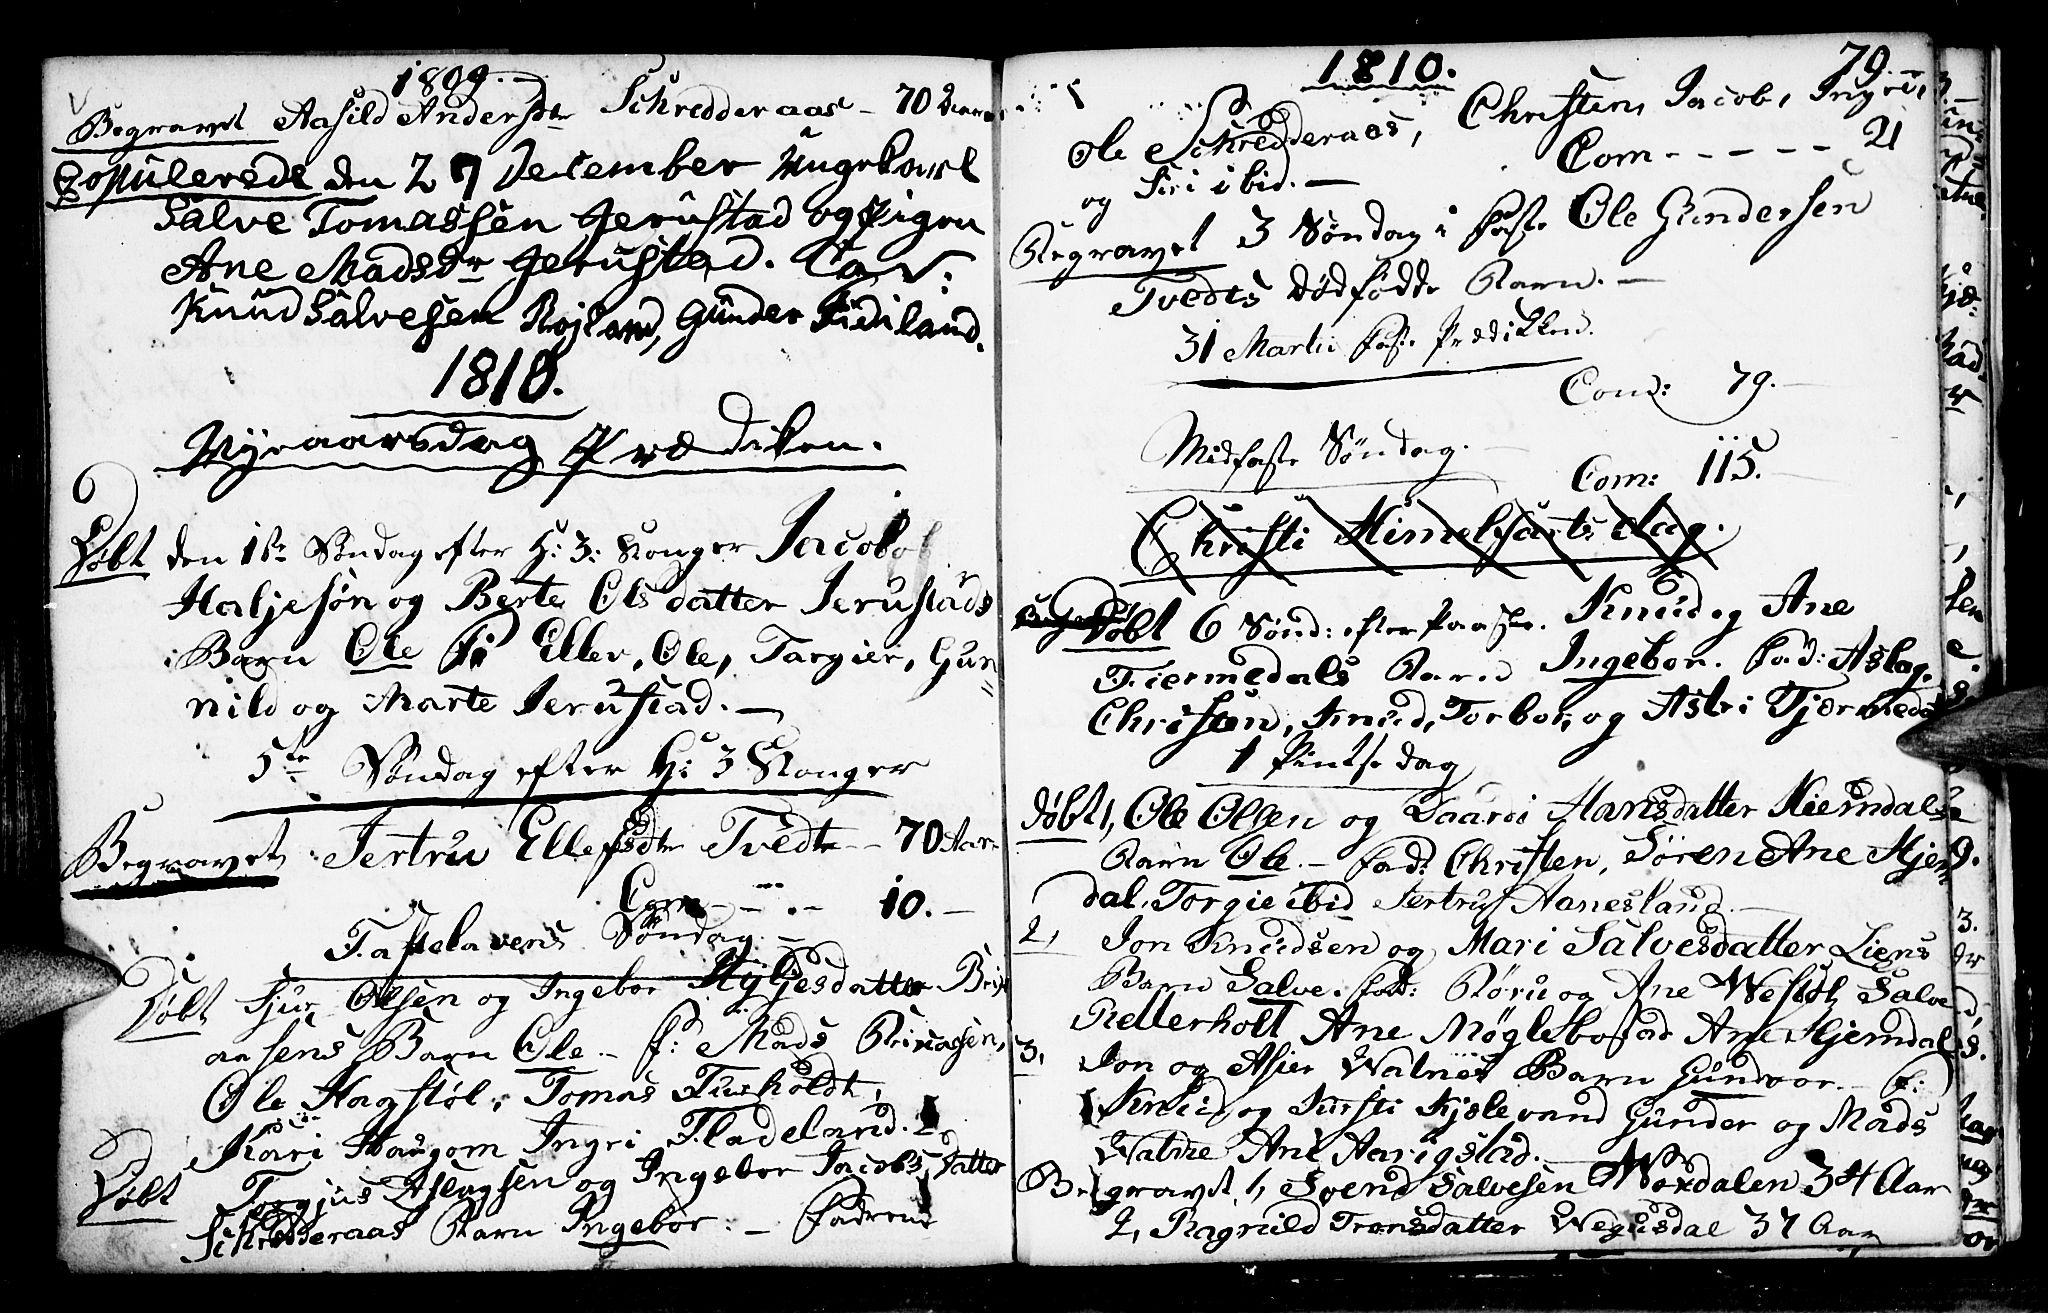 1809.-
Begravet Aasild Andersdtr Schredderaas - 70
Copulerede den 27 December Ungekarl
Salve Tomassen Jerustad og Pigen
Ane Madsdr Jerustad. Cav:
Knud Salvesen Røjland, Gunder Fidiland.
1810.
Nyeaarsdag Prædiken.
Døbt den 1ste Søndag efter H: 3: Konger Jacob
Haljesøn og Berte Olsdatter Jerustads
Barn Ole F: Ellev, Ole, Targier, Gun=
nild og Marte Jerustad. -
5te Søndag efter H: 3 Konger
Begravet Jertru Ellefsdtr Tvedt - 70 Aar
Com - - - 10. -
Fastelavens Søndag -
Døbt Sjur Olsen og Ingebor Kyljesdatter
aasens Barn Ole - F: Mads
Ole Hagstøl, Tomas
Kari Haugom Ingri Fladeland. -
Døbt Tergjus Aslagsen og Ingebor Jacobsdatter
Schredderaas Barn Ingebor. - Faderne
1810.
79.
Ole Schredderaas, Christen, Jacob, Ingri,
og Siri ibid. - Com - - - - - 21
Begravet 3 Søndag i Faste Ole Gundersen
Tvedts dødfødde Barn. -
31 Martii Faste Prædikken.
Com: 79. -
Midfaste Søndag. -
Com: 115. -
Christi Himelfarts dag.
Døbt 6 Sønd: efter Paaske. Knud og Ane
Tiermedals Barn Ingebor. Fad: Aslag,
Christen, Knud, Torbor, og Astri Tjærmedal
1 Pintse dag
Døbt 1, Ole Olsen og Taarei Hansdatter Kierndals
Barn Ole. - Fad: Christen, Søren Ane Hjern
dal. Torgie ibid Jertru Aanesland. -
2, Jon Knudsen og Mari Salvesdatter Liens
Barn Salve. Fad: og Ane Westøl Salve
Retterholt Ane Møglebostad Ane Hjerndal
3, Jon og Asier Watnes Barn Gundvor. - F:
Knud og Kirsti Kjølevand Gunder og Mads
Watne Ane Aarigstad. -
Begravet, 1, Svend Salvesen Wordalen 34 Aar
2, Ragnild Tronsdatter Wegusdal 37 Aar